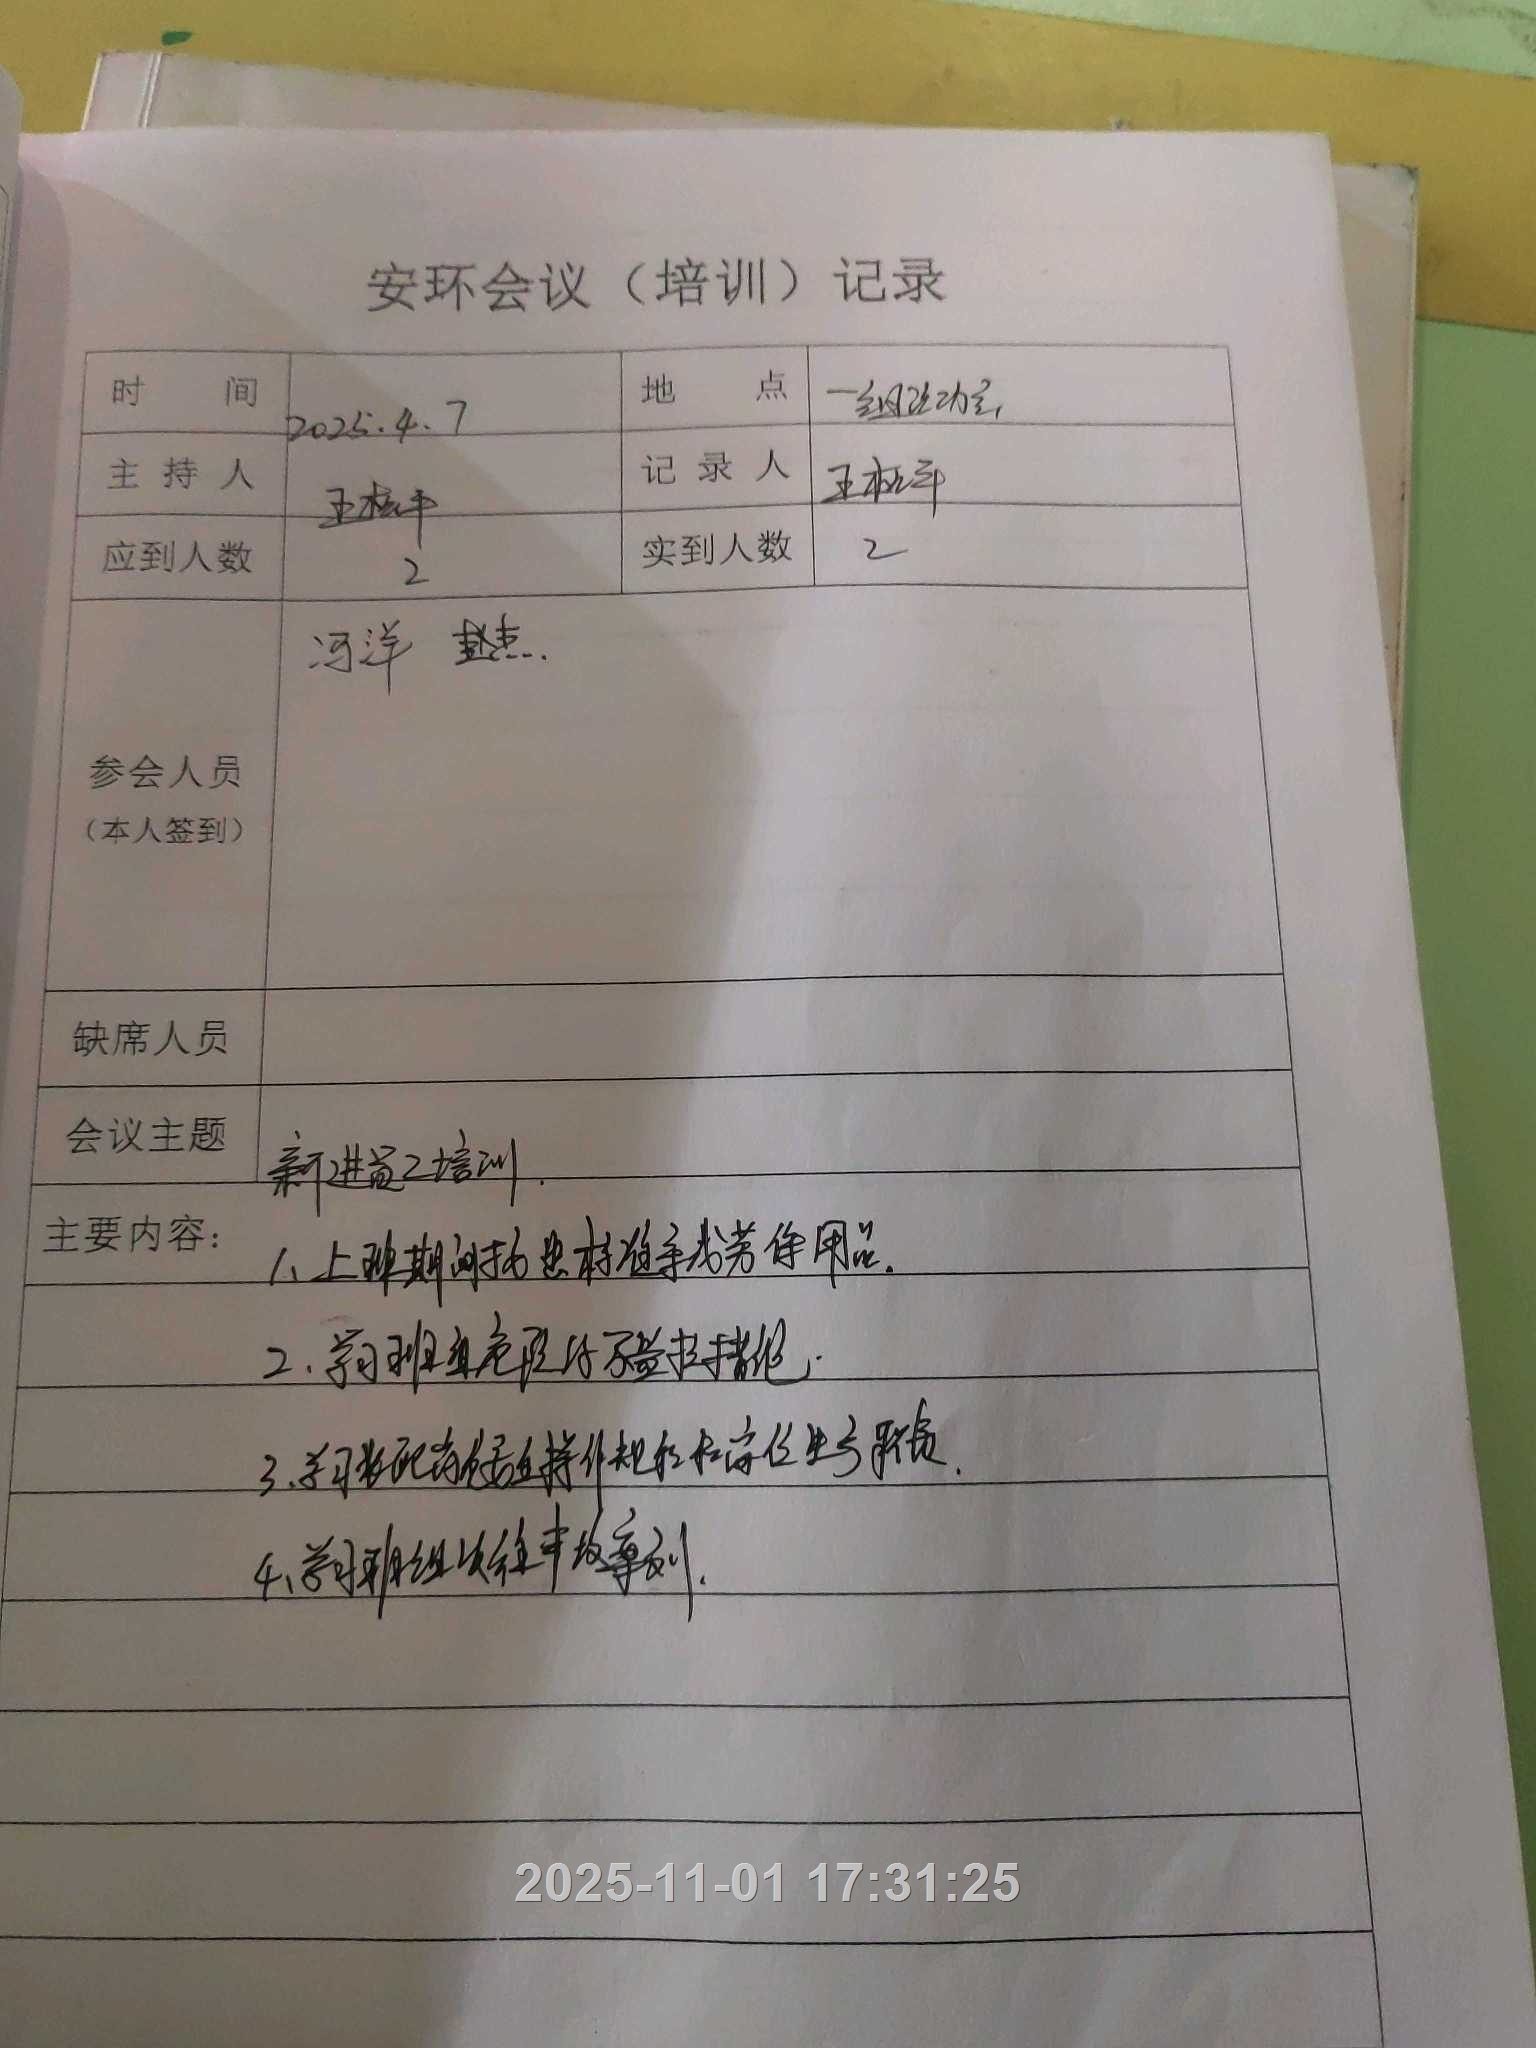 安环会议（培训）记录
时 间 2025.4.7 地 点 一组活动室
主 持 人 王 记 录 人 王
应到人数 2 实到人数 2
冯洋 赵杰
参会人员
（本人签到）
缺席人员
会议主题 新进员工培训.
主要内容: 1、上班期间按 标准穿戴劳保用品.
2.学习班组危险 措施.
3.学习 操作规程和岗位 职责.
4、学习班组以往事故案例.
2025-11-01 17:31:25